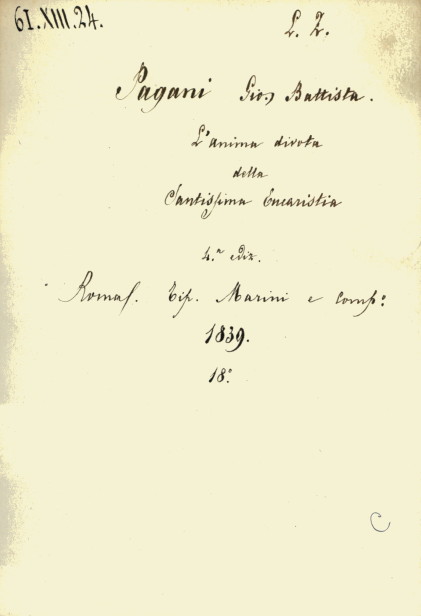 61.XIII.24.
L. Z.
Pagani Gio. Battista.
L'anima divota
della
Santissima Eucaristia
4.ª ediz.
Roma. Tip. Marini e comp.º
1839.
18.º
C